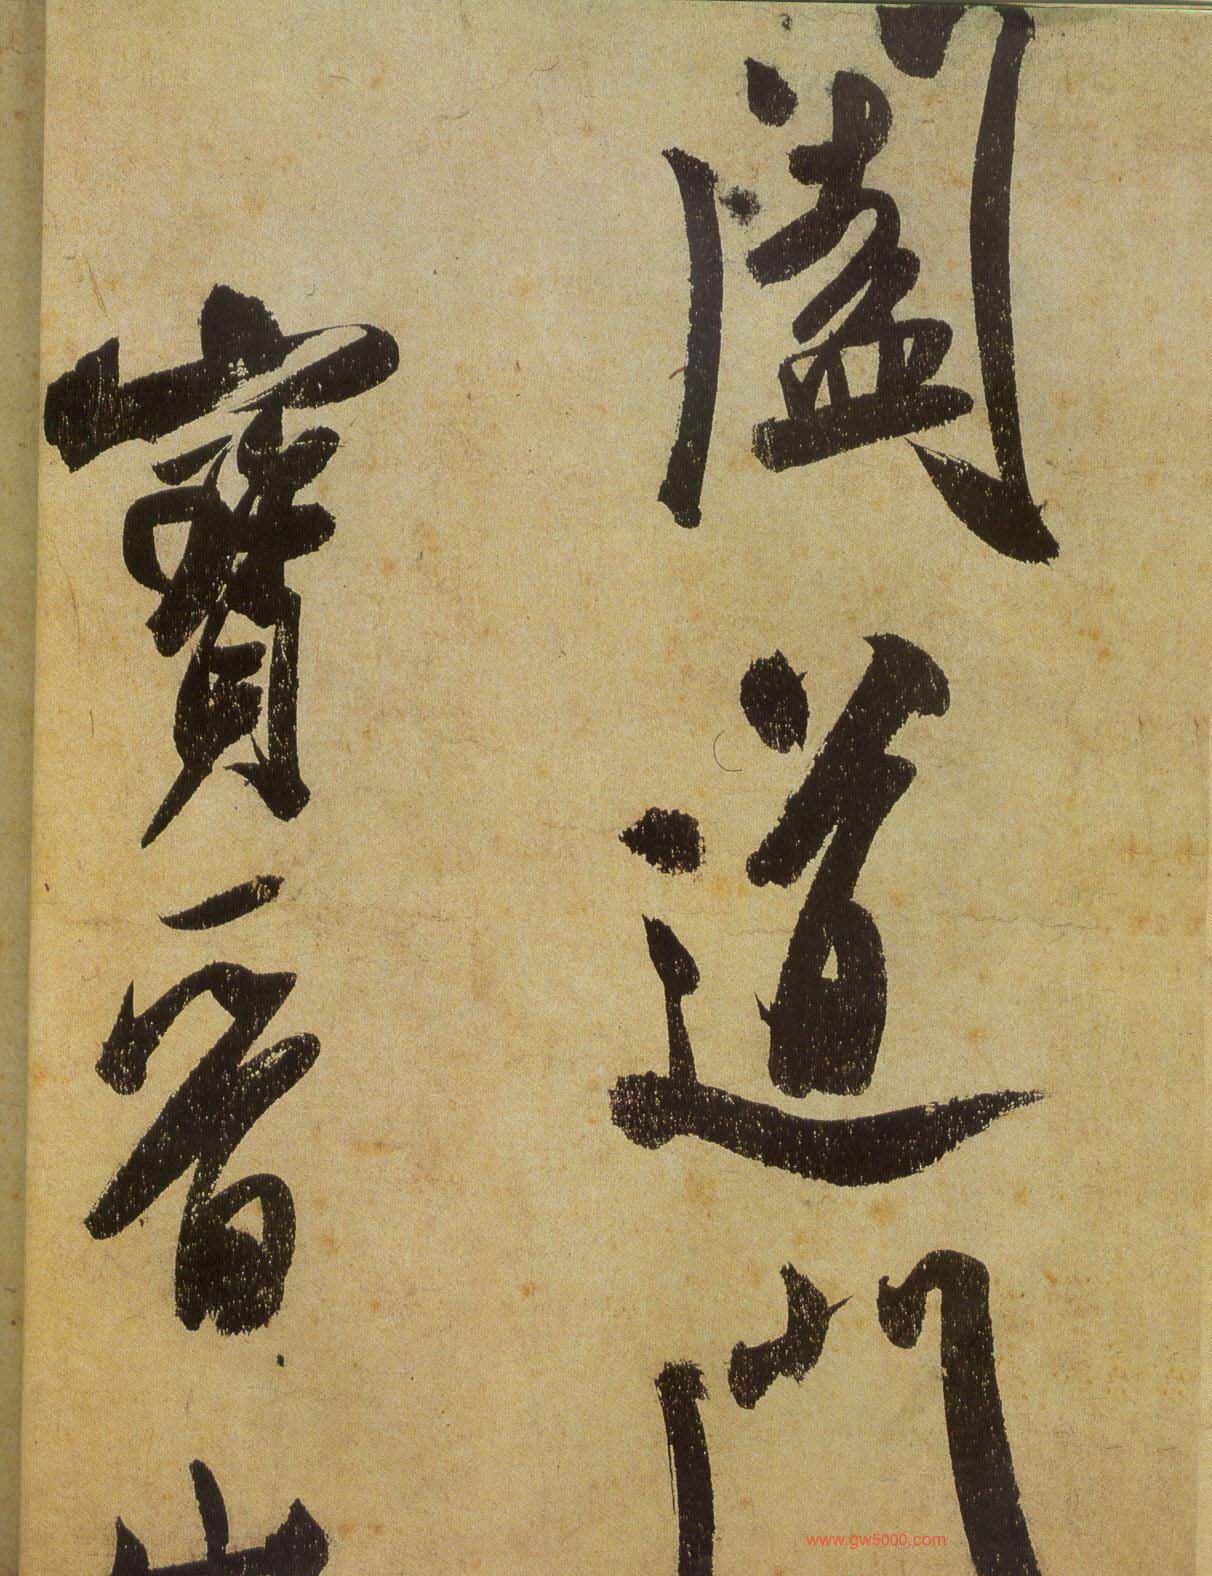 闔道門
寶晉山
www.gw5000.com